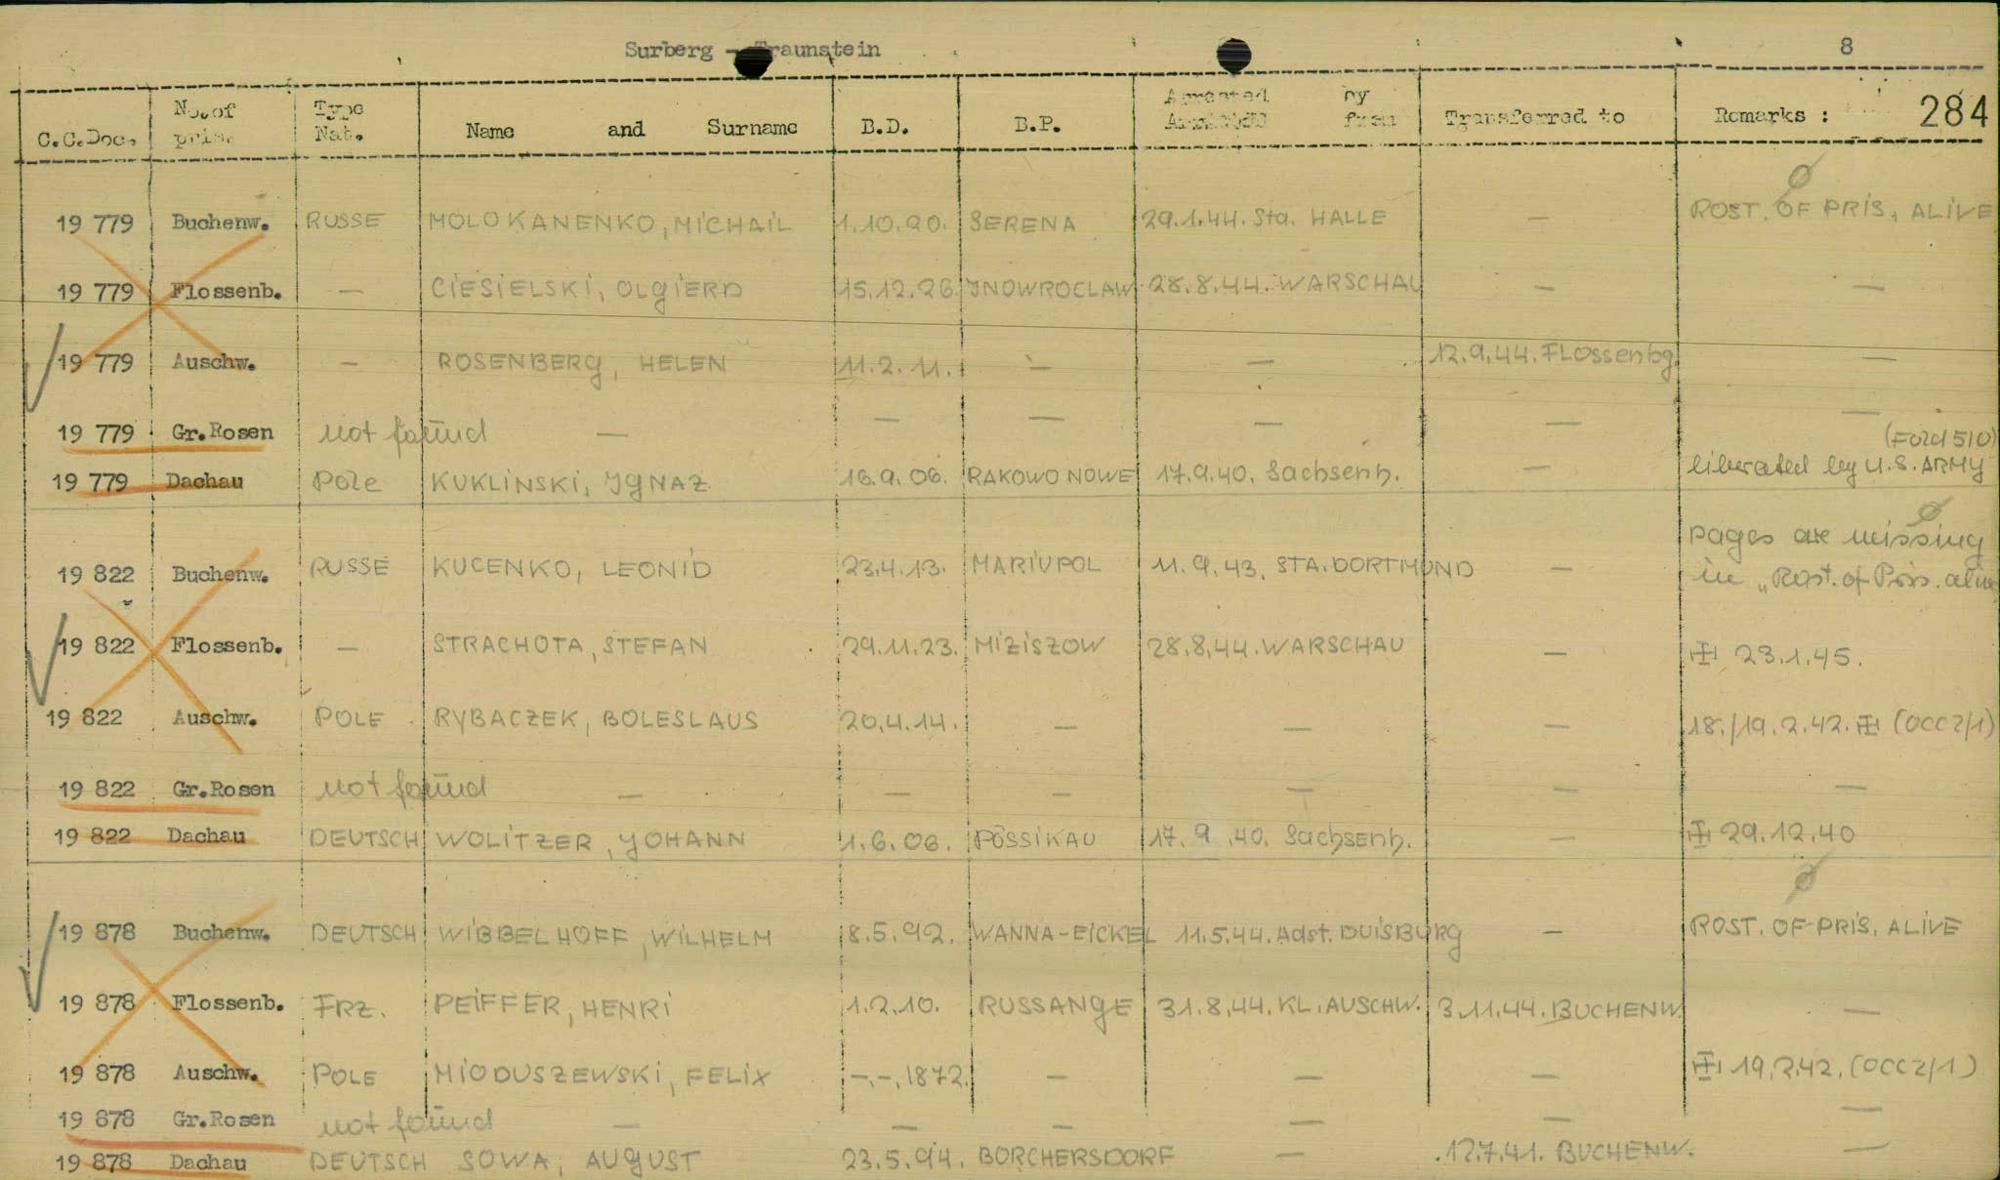 Surberg - Traunstein 8
C.C.Doc. No.of pris. Type Nat. Name and Surname B.D. B.P. Arrested by from Transferred to Remarks : 284
19 779 Buchenw. RUSSE MOLOKANENKO, MICHAIL 1.10.20. SERENA 29.1.44. Sta. HALLE — ROST. OF PRIS, ALIVE
19 779 Flossenb. — CIESIELSKI, OLGIERD 15.12.26. JNOWROCLAW 28.8.44. WARSCHAU — —
19 779 Auschw. — ROSENBERG, HELEN 11.2.11. — — 12.9.44. FLOSSENbg. —
19 779 Gr.Rosen not found — — — — — —
19 779 Dachau Pole KUKLINSKI, JGNAZ 16.9.06. RAKOWO NOWE 17.9.40. Sachsenh. — (Fold 510) liberated by U.S. ARMY
19 822 Buchenw. RUSSE KUCENKO, LEONID 23.4.13. MARIUPOL 11.9.43. STA. DORTMUND — pages are missing in "Rost. of Pris. alive
19 822 Flossenb. — STRACHOTA, STEFAN 29.11.23. MIZISZOW 28.8.44. WARSCHAU — 23.1.45.
19 822 Auschw. POLE RYBACZEK, BOLESLAUS 20.4.14. — — — 18./19.2.42. (OCC 2/1)
19 822 Gr.Rosen not found — — — — — —
19 822 Dachau DEUTSCH WOLITZER, YOHANN 1.6.06. PÖSSIKAU 17.9.40. Sachsenh. — 29.12.40
19 878 Buchenw. DEUTSCH WIBBELHOFF, WILHELM 8.5.92. WANNA-EICKEL 11.5.44. Adst. DUISBURG — ROST. OF PRIS, ALIVE
19 878 Flossenb. FRZ. PEIFFER, HENRI 1.2.10. RUSSANGE 31.8.44. KL. AUSCHW. 3.11.44. BUCHENW. —
19 878 Auschw. POLE MIODUSZEWSKI, FELIX —.—.1872. — — — 19.2.42. (OCC 2/1)
19 878 Gr.Rosen not found — — — — — —
19 878 Dachau DEUTSCH SOWA, AUGUST 23.5.94. BORCHERSDORF — 12.7.41. BUCHENW. —